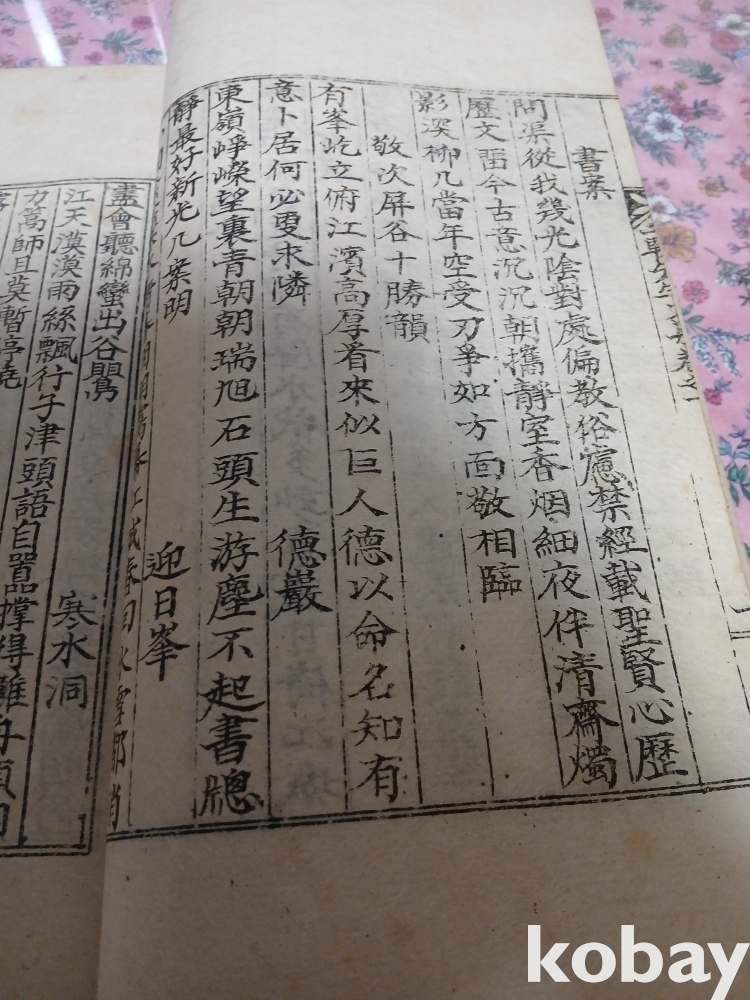 書案
問渠從我幾光陰對處偏教俗慮禁經載聖賢心歷
歷文留今古意沉沉朝攜靜室香烟細夜伴清齋燭
影深柳几當年空受刃爭如方面敬相臨
敬次屏谷十勝韻
有峯屹立俯江濱高厚看來似巨人德以命名知有
意卜居何必更求隣 德巖
東嶺崢嶸望裏青朝朝瑞旭石頭生游塵不起書牕
靜最好新光几案明 迎日峯
盡會聽綿蠻出谷鸎
江天漠漠雨絲飄行子津頭語自囂撐得難舟須
力篙師且莫暫停橈 寒水洞
kobay